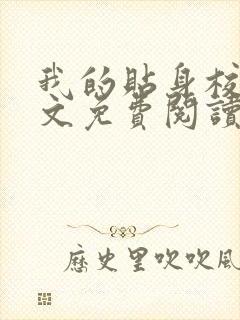 我的貼身校
文免費閱讀
歷史里吹吹風